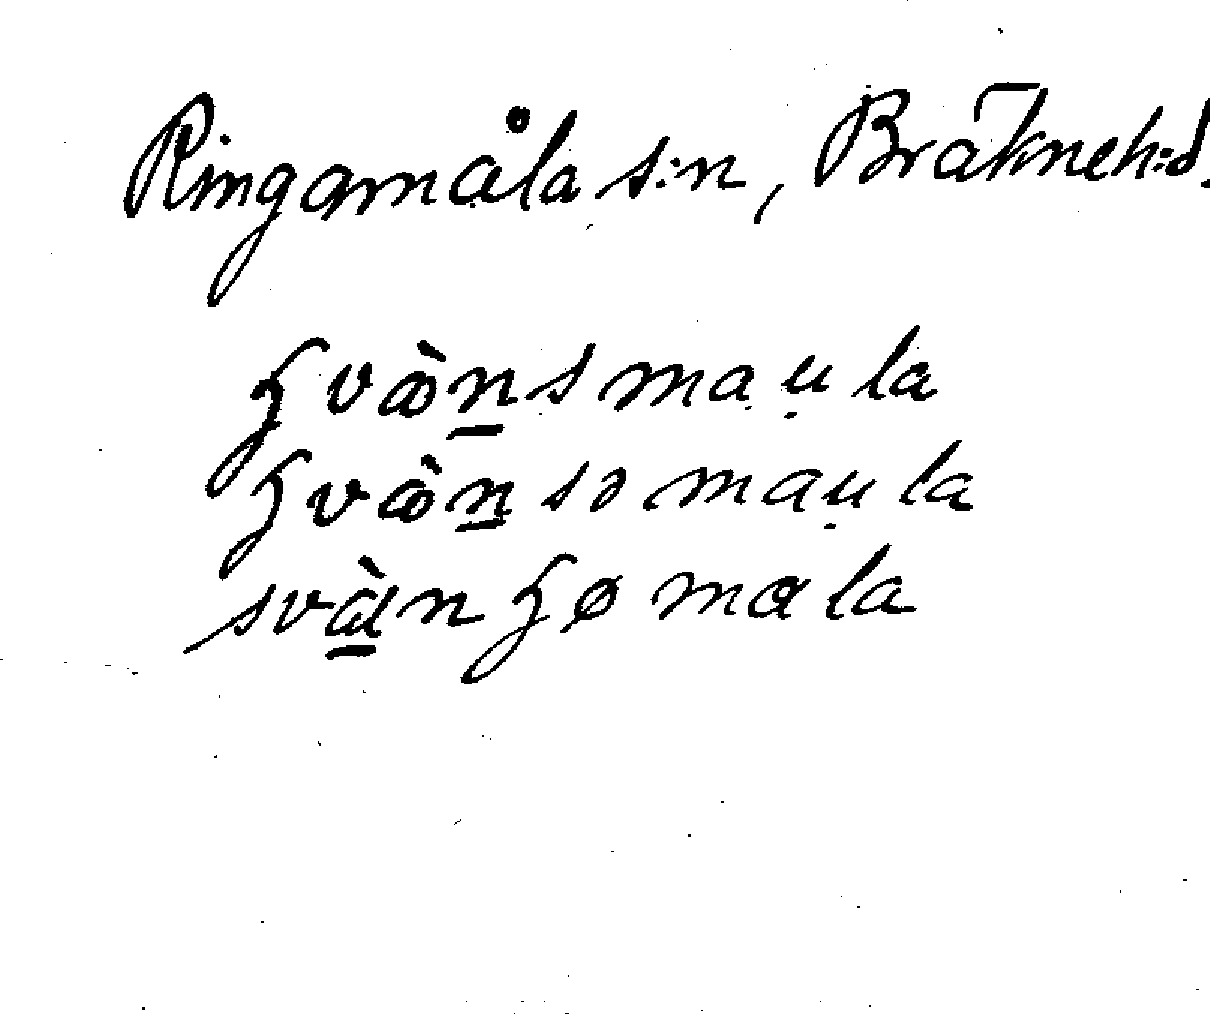 Ringamåla s:n, Bräkneh:d.
ʒvæ̀n̠smau̥la
ʒvæ̀n̠səmau̥la
svæ̠̀nʒømɑla